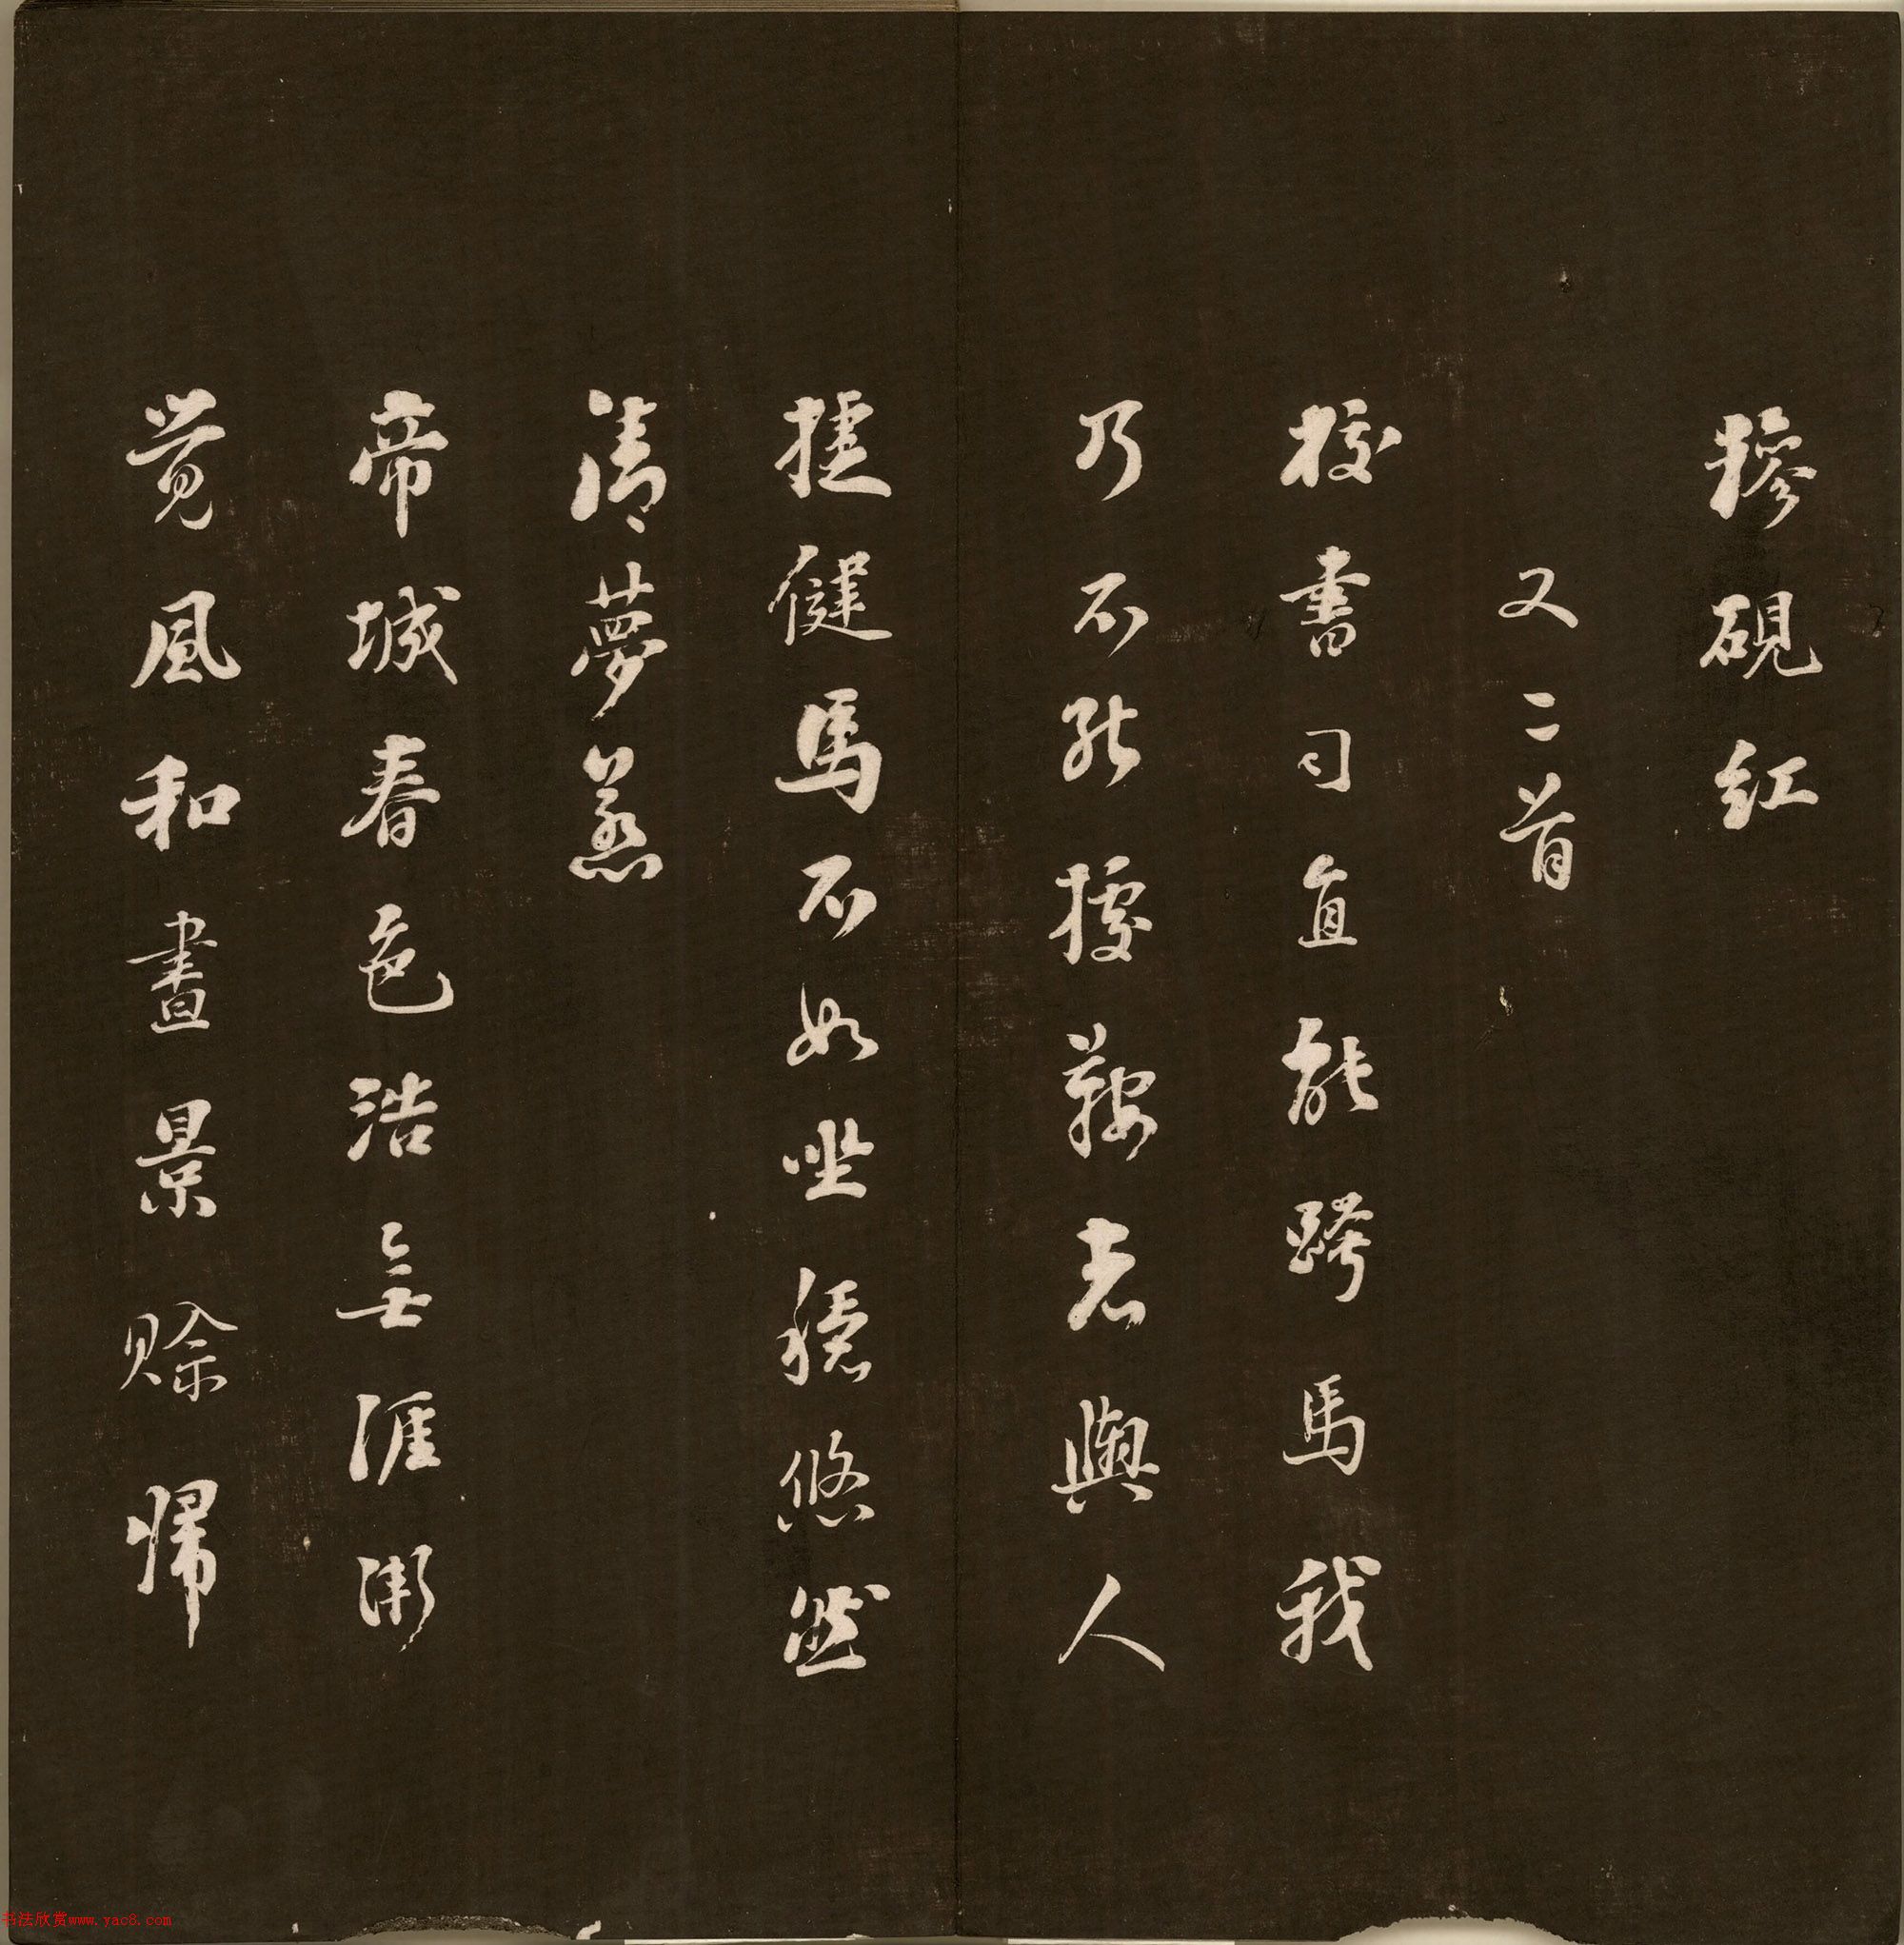 糝硯紅
又二首
校書司直能跨馬我
乃不能據鞍老輿人
捷健馬不如坐穩悠然
清夢蒸
帝城春色浩無涯漸
覺風和晝景賒歸
书法欣赏www.yac8.com